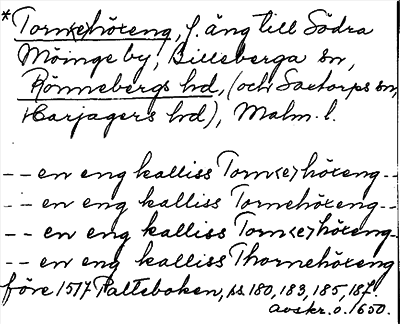 *Torn(e)höreng, f. äng till Södra
Möinge by, Billeberga sn,
Rönnebergs hd, (och Saxtorps sn,
Harjagers hd), Malm. l.
-- en eng kalliss Torn<e>höreng --
-- en eng kalliss Tornehöreng --
-- en eng kalliss Torn<e>höreng --
-- en eng kalliss Thornehöreng
före 1517 Palteboken, ss. 180, 183, 185, 187.
avskr. o. 1650.